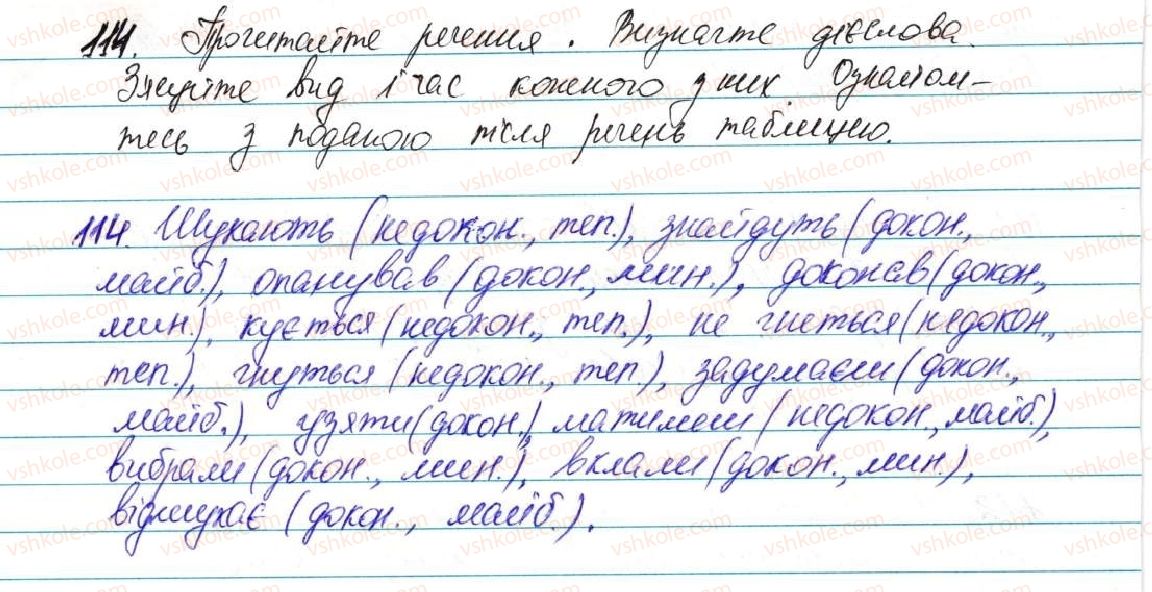 114. Прочитайте речення. Визначте дієслова.
З'ясуйте вид і час кожного з них. Ознайом-
тесь з поданою після речень таблицею.
114. Шукають (недокон., теп.), знайдуть (докон.,
майб.), опанував (докон., мин.), доконав (докон.,
мин.), кується (недокон., теп.), не гнеться (недокон.,
теп.), гнуться (недокон., теп.), задумаєш (докон.,
майб.), узяти (докон.), матимеш (недокон., майб.),
вибрали (докон., мин.), вклали (докон., мин.),
відшукає (докон., майб.).
vshkole.com